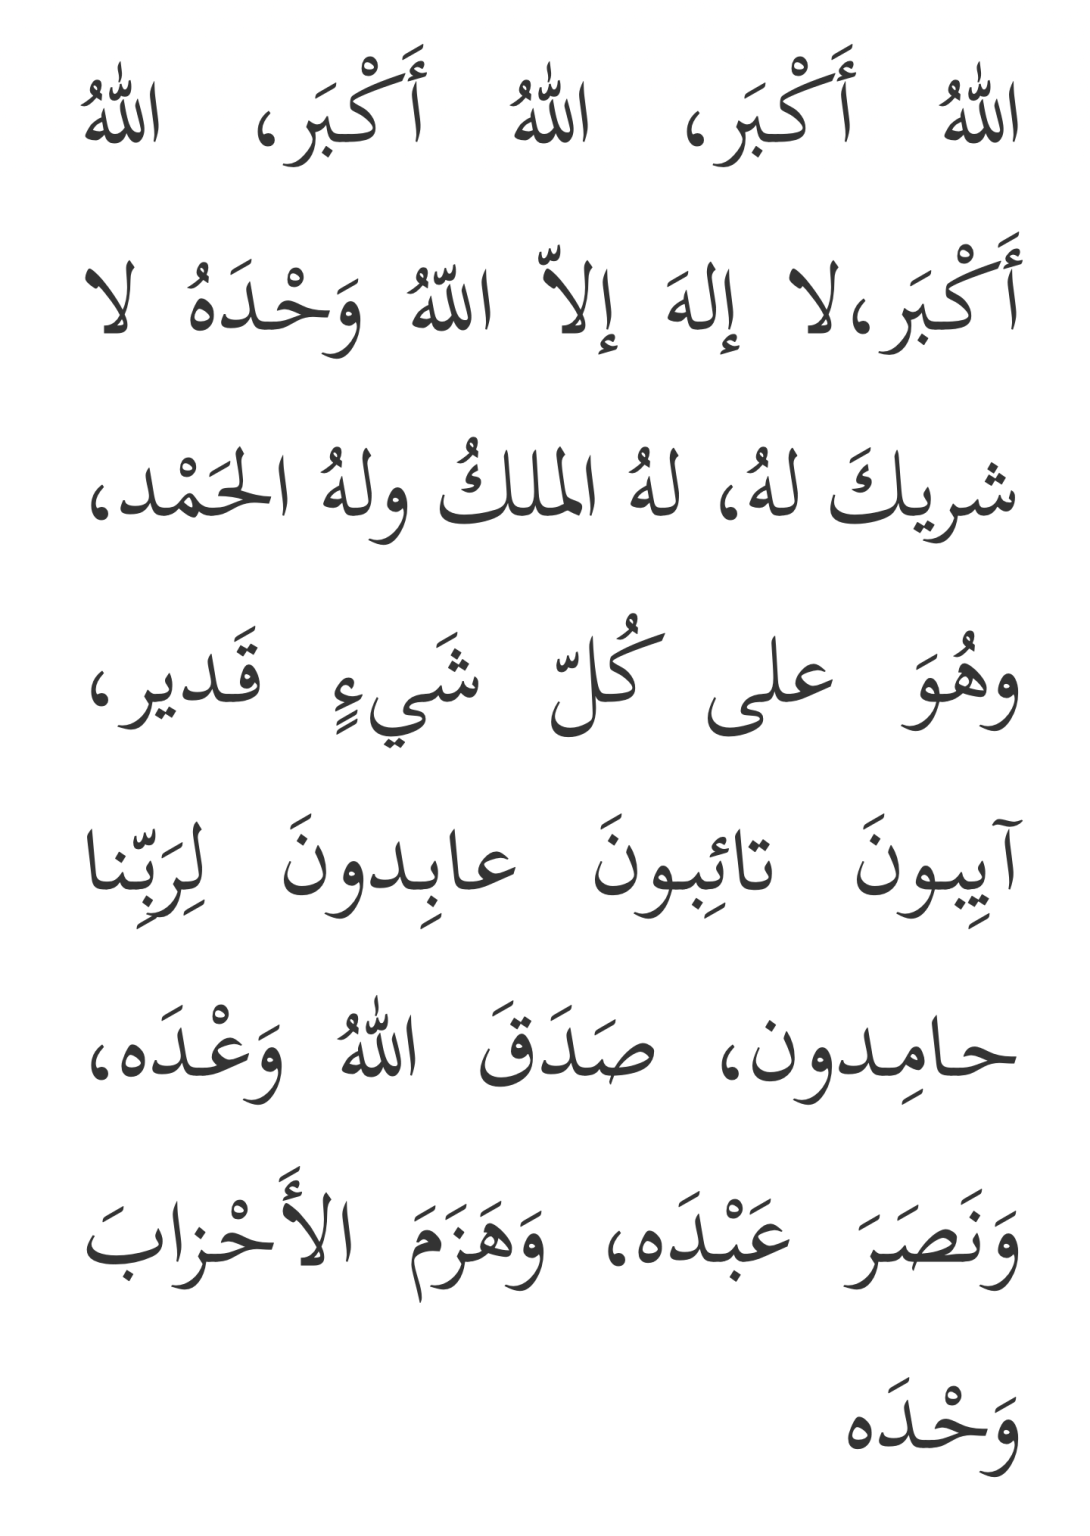 اللهُ أَكْبَر، اللهُ أَكْبَر، اللهُ
أَكْبَر،لا إلهَ إلاّ اللّهُ وَحْدَهُ لا
شريكَ لهُ، لهُ الملكُ ولهُ الحَمْد،
وهُوَ على كُلّ شَيءٍ قَدير،
آيِبونَ تائِبونَ عابِدونَ لِرَبِّنا
حامِدون، صَدَقَ اللهُ وَعْدَه،
وَنَصَرَ عَبْدَه، وَهَزَمَ الأَحْزابَ
وَحْدَه